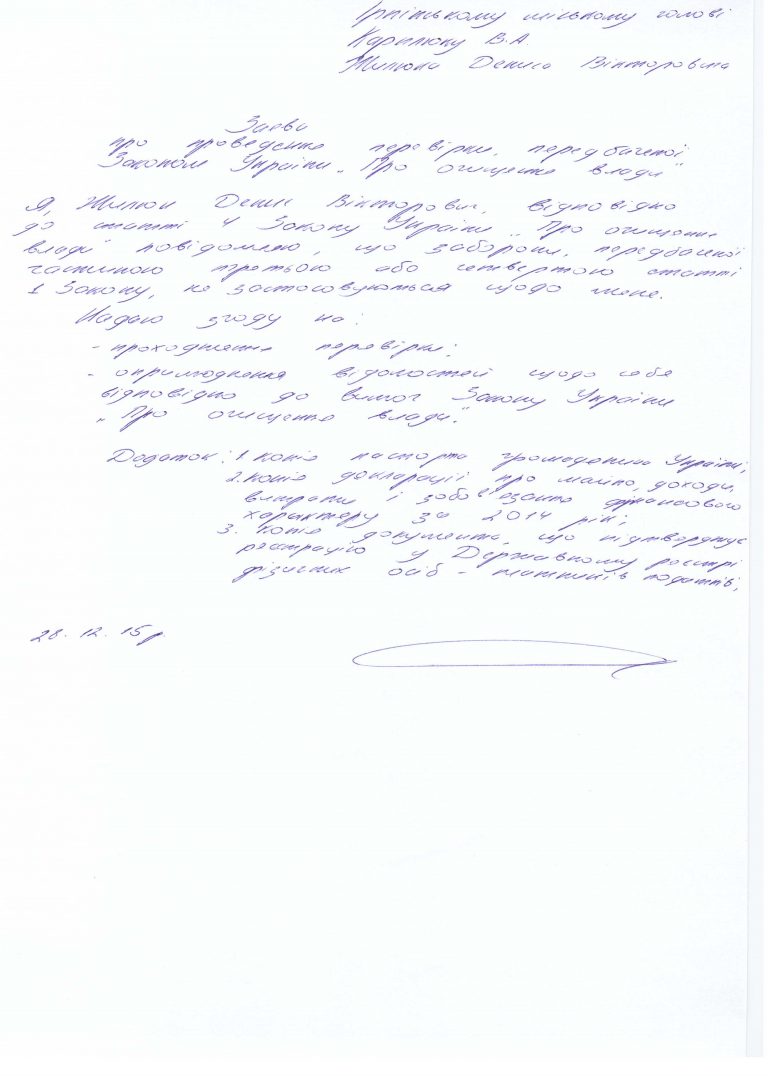 Ірпінському міському голові
Карплюку В.А
Дениса Вікторовича
Заява
про проведення перевірки, передбаченої
Законом України „Про очищення влади"
Я, Денис Вікторович, відповідно
до статті 4 Закону України „Про очищення
влади" повідомляю, що заборони, передбачені
частиною третьою або четвертою статті
1 Закону, не застосовуються щодо мене.
Надаю згоду на:
- проходження перевірки;
- оприлюднення відомостей щодо себе
відповідно до вимог Закону України
„Про очищення влади".
Додаток: 1 копія паспорта громадянина України;
2. копія декларації про майно, доходи,
витрати і зобов'язання фінансового
характеру за 2014 рік;
3. копія документа, що підтверджує
реєстрацію у Державному реєстрі
фізичних осіб - платників податків;
28. 12. 15р